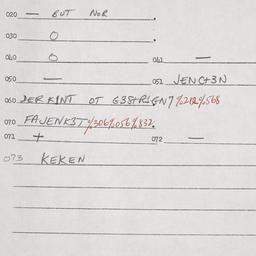 020 — BUT NOR .
030 O .
040 O 041 —
050 — 051 JENC+3N
060 DER KINT OT G38+R1GN7 %212%568
070 FAJENK3T %306%056%832.
071 + 072 —
073 KEKEN